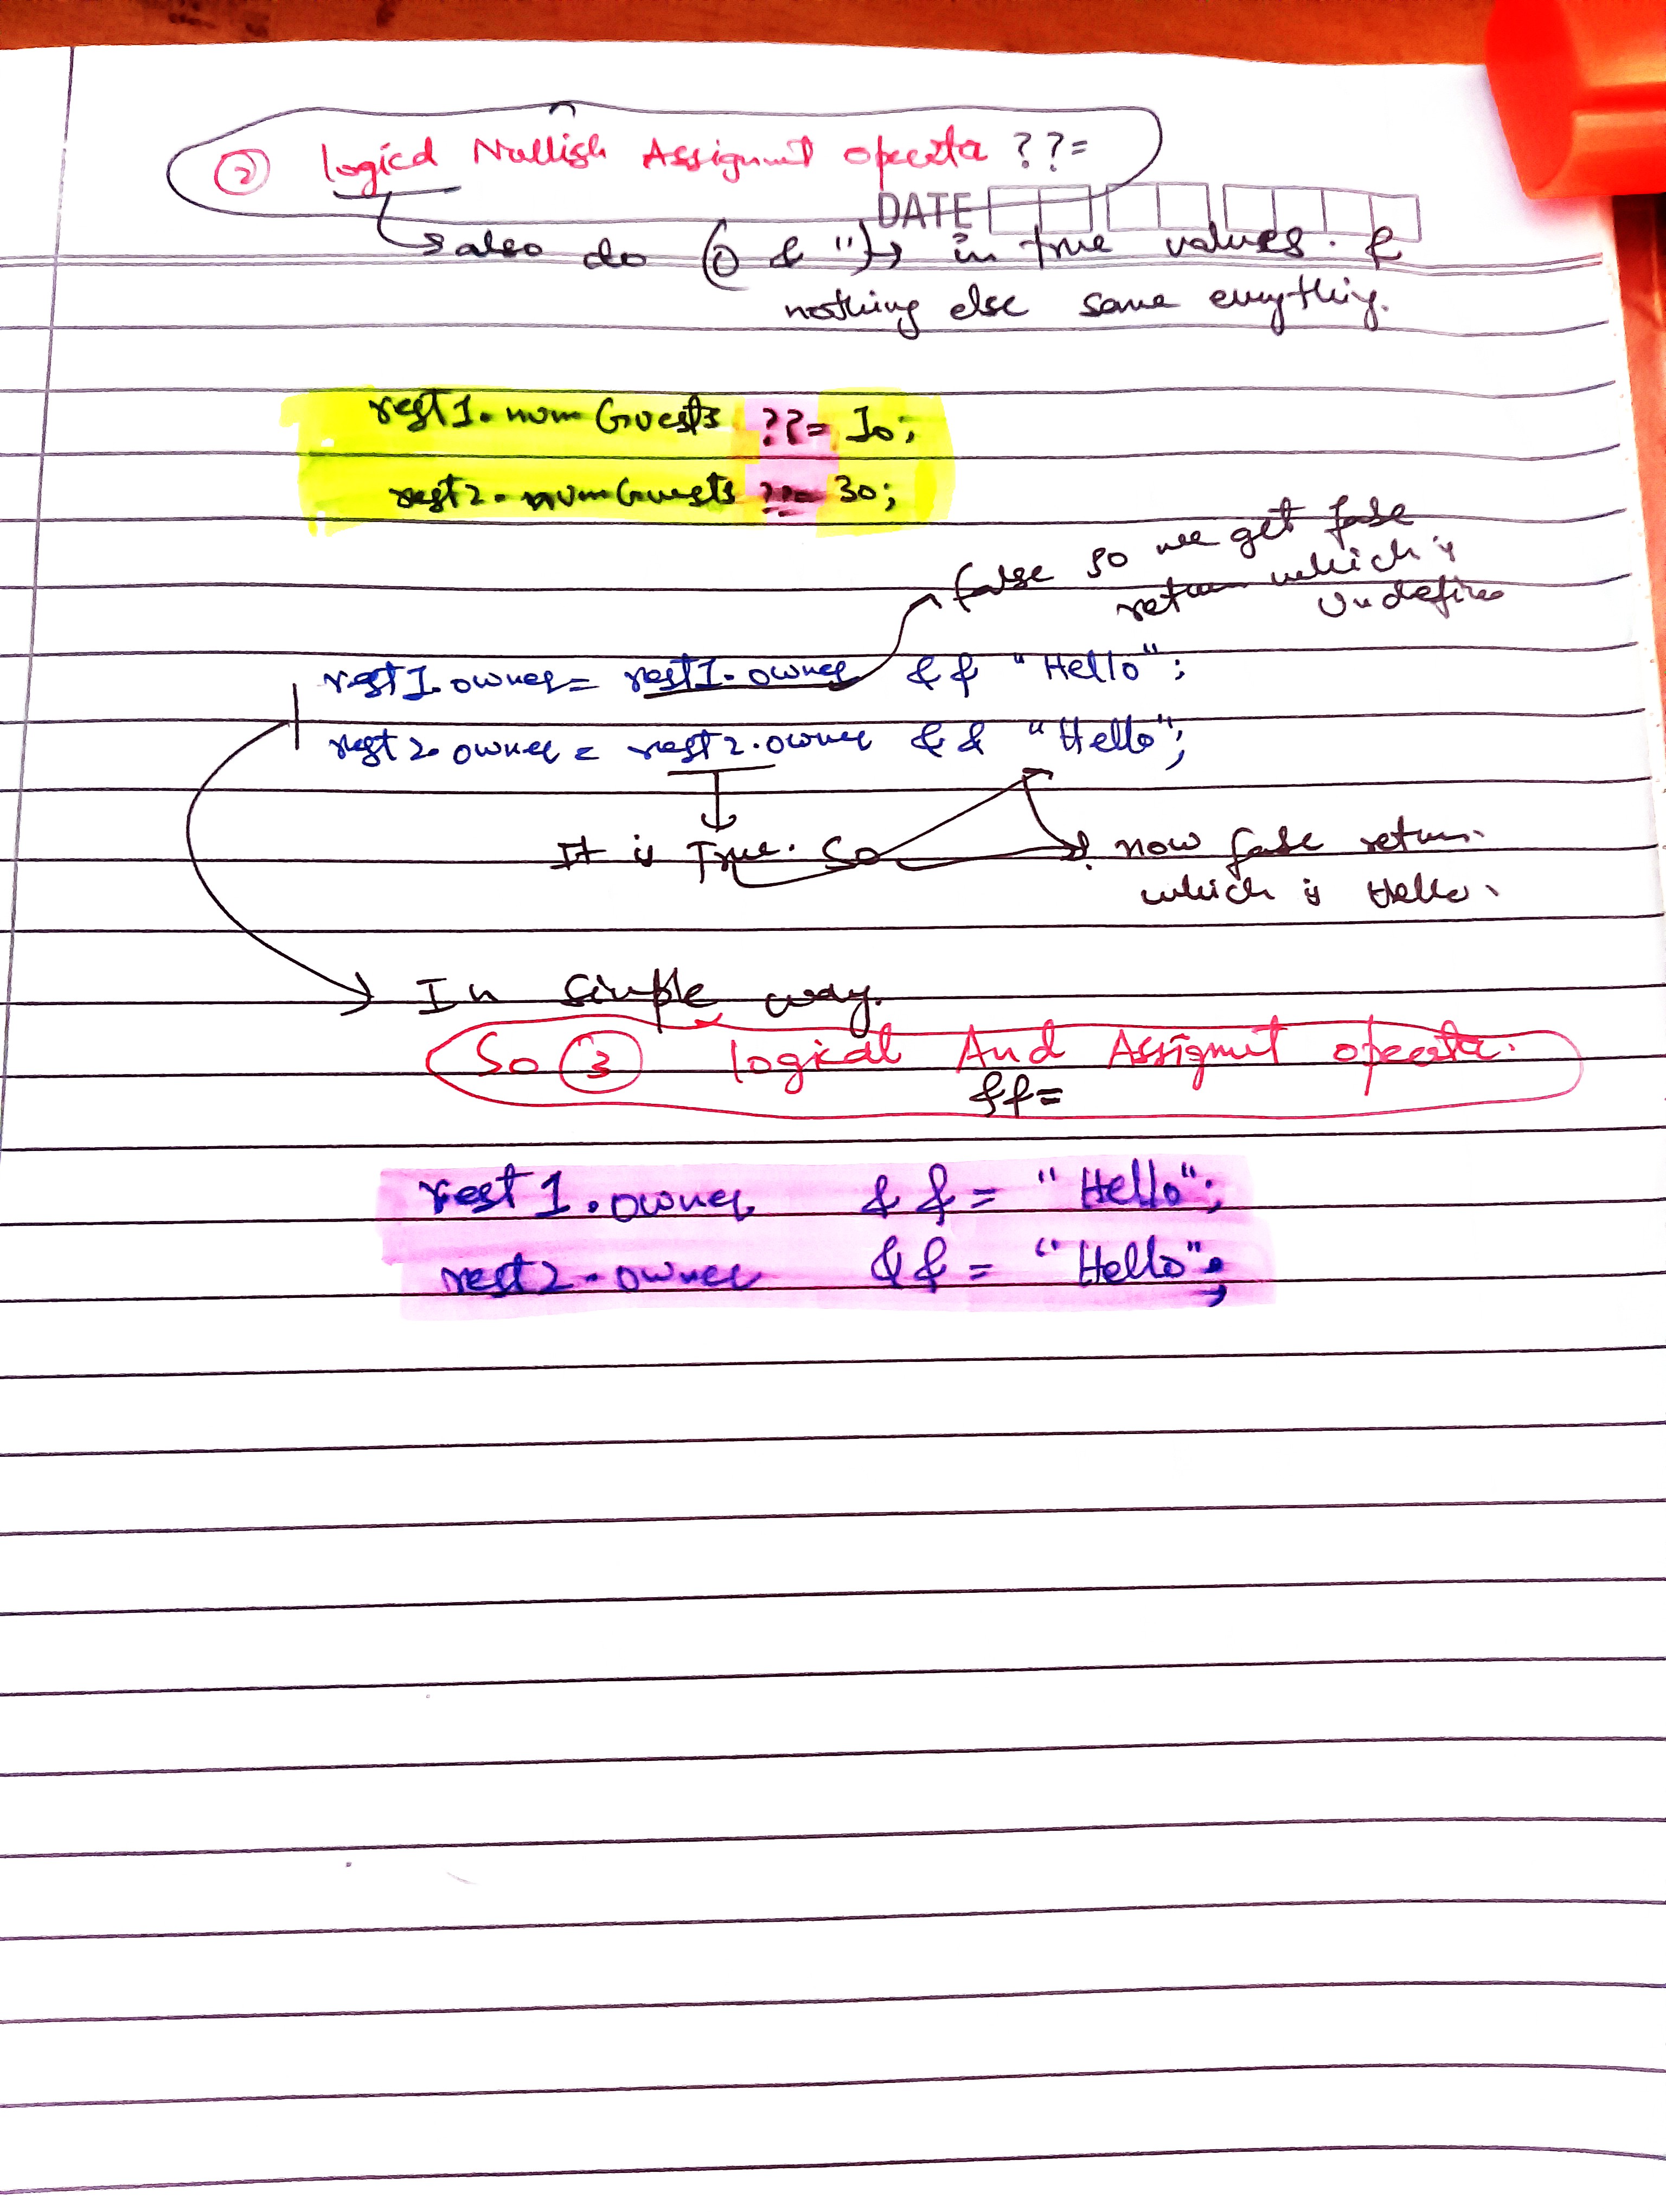 ② logical Nullish Assignmt operata ??=
DATE
↳ also do (0 & '') → in true values. &
nothing else same everything.
rest1.numGuests ??= 10;
rest2.numGuests ??= 30;
false so we get false
return which is
Undefine
rest1.owner = rest1.owner && "Hello";
rest2.owner = rest2.owner && "Hello";
It is True. So now false return
which is Hello.
→ In simple way.
So ③ logical And Assigmt operata.
&&=
rest1.owner &&= "Hello";
rest2.owner &&= "Hello";